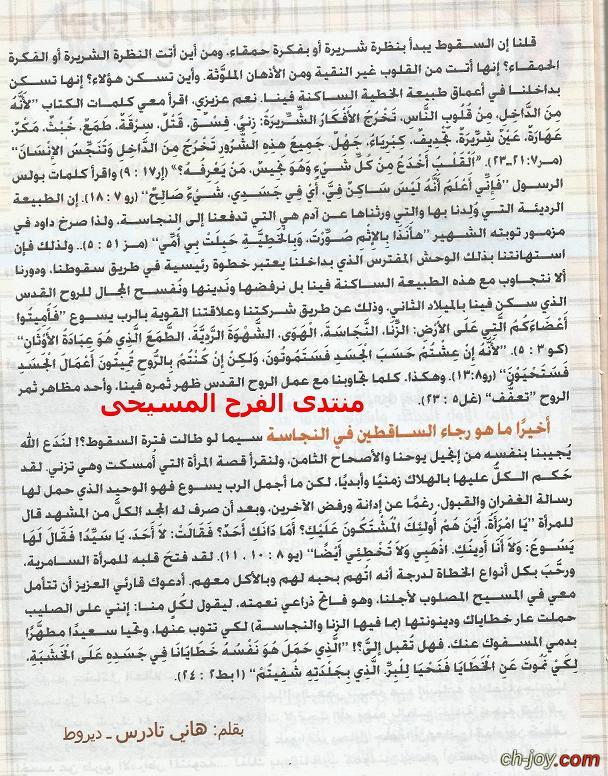 قلنا إن السقوط يبدأ بنظرة شريرة أو بفكرة حمقاء، ومن أين أتت النظرة الشريرة أو الفكرة
الحمقاء؟ إنها أتت من القلوب غير النقية ومن الأذهان الملوَّثة، وأين تسكن هؤلاء؟ إنها تسكن
بداخلنا في أعماق طبيعة الخطية الساكنة فينا. نعم عزيزي، اقرأ معي كلمات الكتاب "لأَنَّهُ
مِنَ الدَّاخِلِ، مِنْ قُلُوبِ النَّاسِ، تَخْرُجُ الأَفْكَارُ الشِّرِّيرَةُ: زِنىً، فِسْقٌ، قَتْلٌ، سِرْقَةٌ، طَمَعٌ، خُبْثٌ، مَكْرٌ،
عَهَارَةٌ، عَيْنٌ شِرِّيرَةٌ، تَجْدِيفٌ، كِبْرِيَاءُ، جَهْلٌ. جَمِيعُ هذِهِ الشُّرُورِ تَخْرُجُ مِنَ الدَّاخِلِ وَتُنَجِّسُ الإِنْسَانَ"
(مر٧: ٢١-٢٣). "اَلْقَلْبُ أَخْدَعُ مِنْ كُلِّ شَيْءٍ وَهُوَ نَجِيسٌ، مَنْ يَعْرِفُهُ؟" (إر١٧ : ٩) واقرأ كلمات بولس
الرسول "فَإِنِّي أَعْلَمُ أَنَّهُ لَيْسَ سَاكِنٌ فِيَّ، أَيْ فِي جَسَدِي، شَيْءٌ صَالِحٌ" (رو ٧ : ١٨). إن الطبيعة
الرديئة التي وُلدنا بها والتي ورثناها عن آدم هي التي تدفعنا إلى النجاسة، ولذا صرخ داود في
مزمور توبته الشهير "هأَنَذَا بِالإِثْمِ صُوِّرْتُ، وَبِالْخَطِيَّةِ حَبِلَتْ بِي أُمِّي" (مز ٥١ : ٥).. ولذلك فإن
استهانتنا بذلك الوحش المفترس الذي بداخلنا يعتبر خطوة رئيسية في طريق سقوطنا. ودورنا
ألا نتجاوب مع هذه الطبيعة الساكنة فينا بل نرفضها وندينها ونُفسح المجال للروح القدس
الذي سكن فينا بالميلاد الثاني، وذلك عن طريق شركتنا وعلاقتنا القوية بالرب يسوع "فَأَمِيتُوا
أَعْضَاءَكُمُ الَّتِي عَلَى الأَرْضِ: الزِّنَا، النَّجَاسَةَ، الْهَوَى، الشَّهْوَةَ الرَّدِيَّةَ، الطَّمَعَ الَّذِي هُوَ عِبَادَةُ الأَوْثَانِ"
(كو ٣ : ٥). "لأَنَّهُ إِنْ عِشْتُمْ حَسَبَ الْجَسَدِ فَسَتَمُوتُونَ، وَلكِنْ إِنْ كُنْتُمْ بِالرُّوحِ تُمِيتُونَ أَعْمَالَ الْجَسَدِ
فَسَتَحْيَوْنَ" (رو٨: ١٣). وهكذا، كلما تجاوبنا مع عمل الروح القدس ظهر ثمره فينا، وأحد مظاهر ثمر
الروح "تعفف" (غل٥ : ٢٣).
منتدى الفرح المسيحى
أخيرًا ما هو رجاء الساقطين في النجاسة سيما لو طالت فترة السقوط؟! لندَع الله
يُجيبنا بنفسه من إنجيل يوحنا والأصحاح الثامن، ولنقرأ قصة المرأة التي أُمسكت وهي تزني. لقد
حَكم الكلُّ عليها بالهلاك زمنيًا وأبديًا، لكن ما أجمل الرب يسوع فهو الوحيد الذي حمل لها
رسالة الغفران والقبول، رغمًا عن إدانة ورفض الآخرين. وبعد أن صرف له المجد الكلَّ من المشهد قال
للمرأة "يَا امْرَأَةُ، أَيْنَ هُمْ أُولئِكَ الْمُشْتَكُونَ عَلَيْكِ؟ أَمَا دَانَكِ أَحَدٌ؟ فَقَالَتْ: لاَ أَحَدَ، يَا سَيِّدُ! فَقَالَ لَهَا
يَسُوعُ: وَلاَ أَنَا أَدِينُكِ. اذْهَبِي وَلاَ تُخْطِئِي أَيْضًا" (يو ٨ : ١٠ ، ١١). لقد فتحَ قلبه للمرأة السامرية،
ورحَّبَ بكل أنواع الخطاة لدرجة أنه اتُهم بحبه لهم وبالأكل معهم. أدعوك قارئي العزيز أن تتأمل
معي في المسيح المصلوب لأجلنا، وهو فاتحٌ ذراعي نعمته، ليقول لكُلٍ منا: إنني على الصليب
حملت عار خطاياك ودينونتها (بما فيها الزنا والنجاسة) لكي تتوب عنها، وتحيا سعيدًا مطهَّرًا
بدمي المسفوك عنك، فهل تُقبل إليَّ؟! "الَّذِي حَمَلَ هُوَ نَفْسُهُ خَطَايَانَا فِي جَسَدِهِ عَلَى الْخَشَبَةِ،
لِكَيْ نَمُوتَ عَنِ الْخَطَايَا فَنَحْيَا لِلْبِرِّ. الَّذِي بِجَلْدَتِهِ شُفِيتُمْ" (١بط٢ : ٢٤).
بقلم: هاني تادرس - ديروط
ch-joy.com